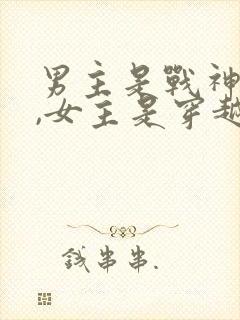 男主是戰神
,女主是穿越
錢串串.